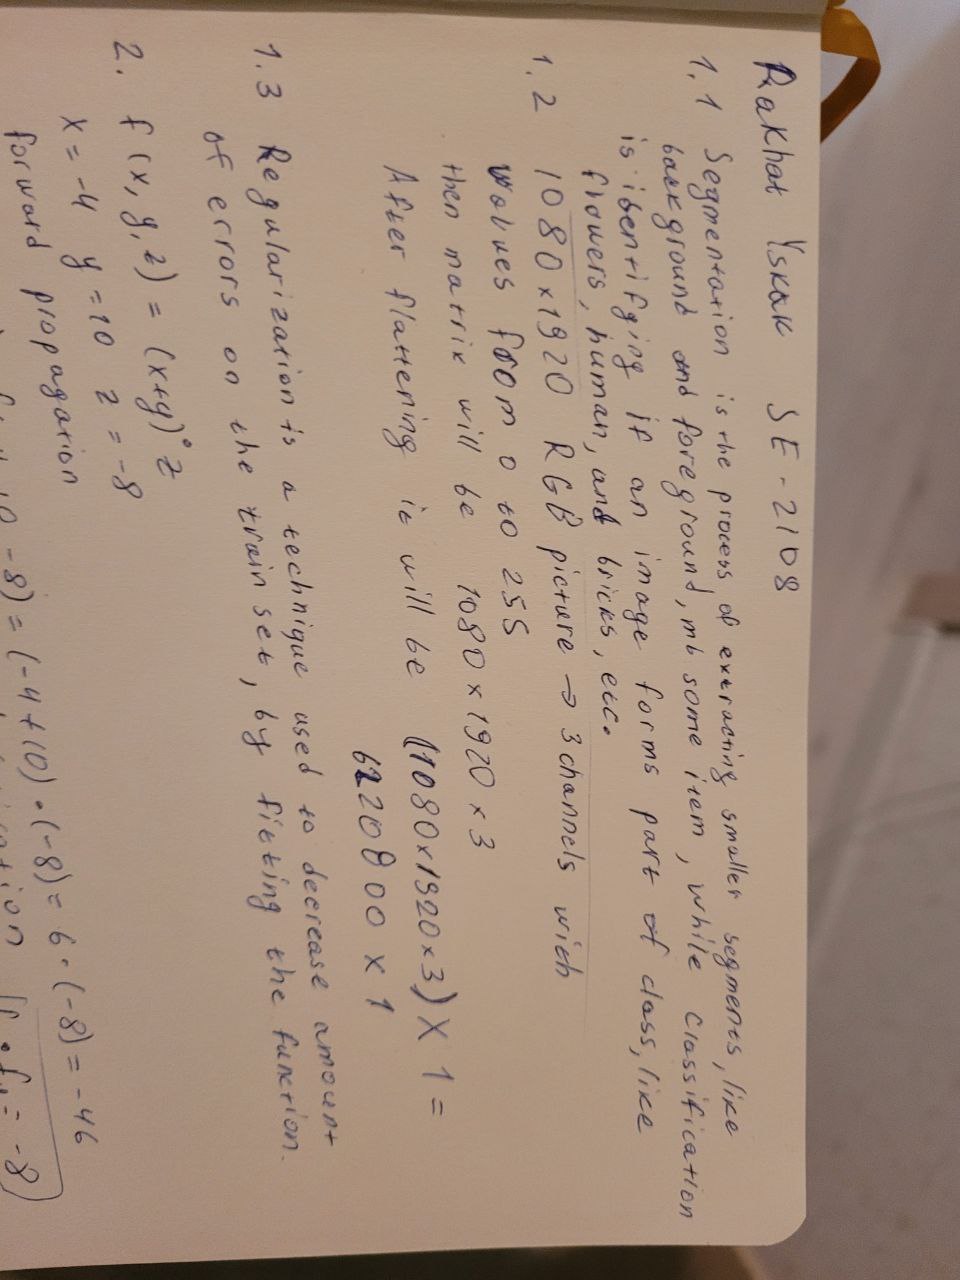 Rakhat Yskak SE-2108
1.1 Segmentation is the process of extracting smaller segments, like
background and foreground, mb some item, while classification
is identifying if an image forms part of class, like
flowers, human, and bricks, etc.
1.2 1080x1920 RGB picture → 3 channels with
values from 0 to 255
then matrix will be 1080x1920x3
After flattering it will be (1080x1920x3) x 1 =
6220800 x 1
1.3 Regularization is a technique used to decrease amount
of errors on the train set, by fitting the function.
2. f(x, y, z) = (x+y)•z
x = -4 y = 10 z = -8
forward propagation
-8) = (-4+10)•(-8) = 6•(-8) = -46
= -8